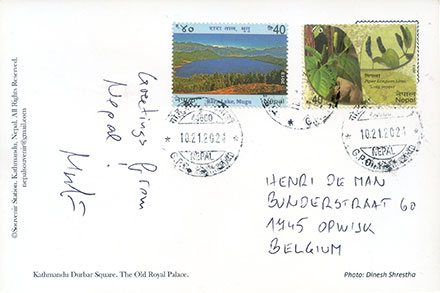 रारा ताल, मुगु
रु४०
40
नेपाल
Nepal
Rara Lake, Mugu
Piper longum Linn.
Long pepper
पिपला
नेपाल
Nepal
40
10.21.202
NEPAL
10.21.202
NEPAL
G.P.O.
Greetings from
Nepal !
HENRI DE MAN
BUNDERSTRAAT 60
1745 OPWIJK
BELGIUM
©Souvenir Station. Kathmandu, Nepal. All Rights Reserved.
Kathmandu Durbar Square. The Old Royal Palace.
Photo: Dinesh Shrestha